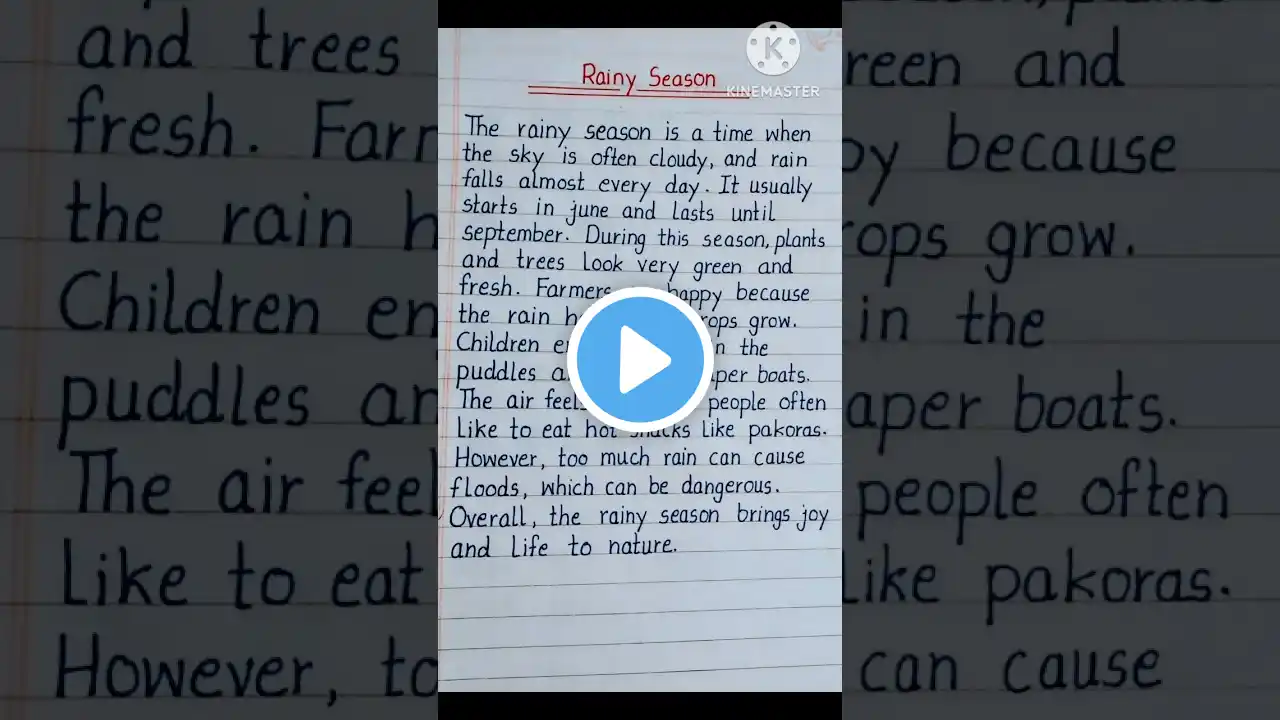 Rainy Season
KINEMASTER
The rainy season is a time when
the sky is often cloudy, and rain
falls almost every day. It usually
starts in june and lasts until
september. During this season, plants
and trees look very green and
fresh. Farmers happy because
the rain grow.
Children in the
puddles boats.
The air feels people often
Like to eat hot snacks like pakoras.
However, too much rain can cause
floods, which can be dangerous.
Overall, the rainy season brings joy
and life to nature.
and trees reen and
fresh. because
the rain grow.
Children in the
puddles boats.
The air people often
Like to eat like pakoras.
However, can cause